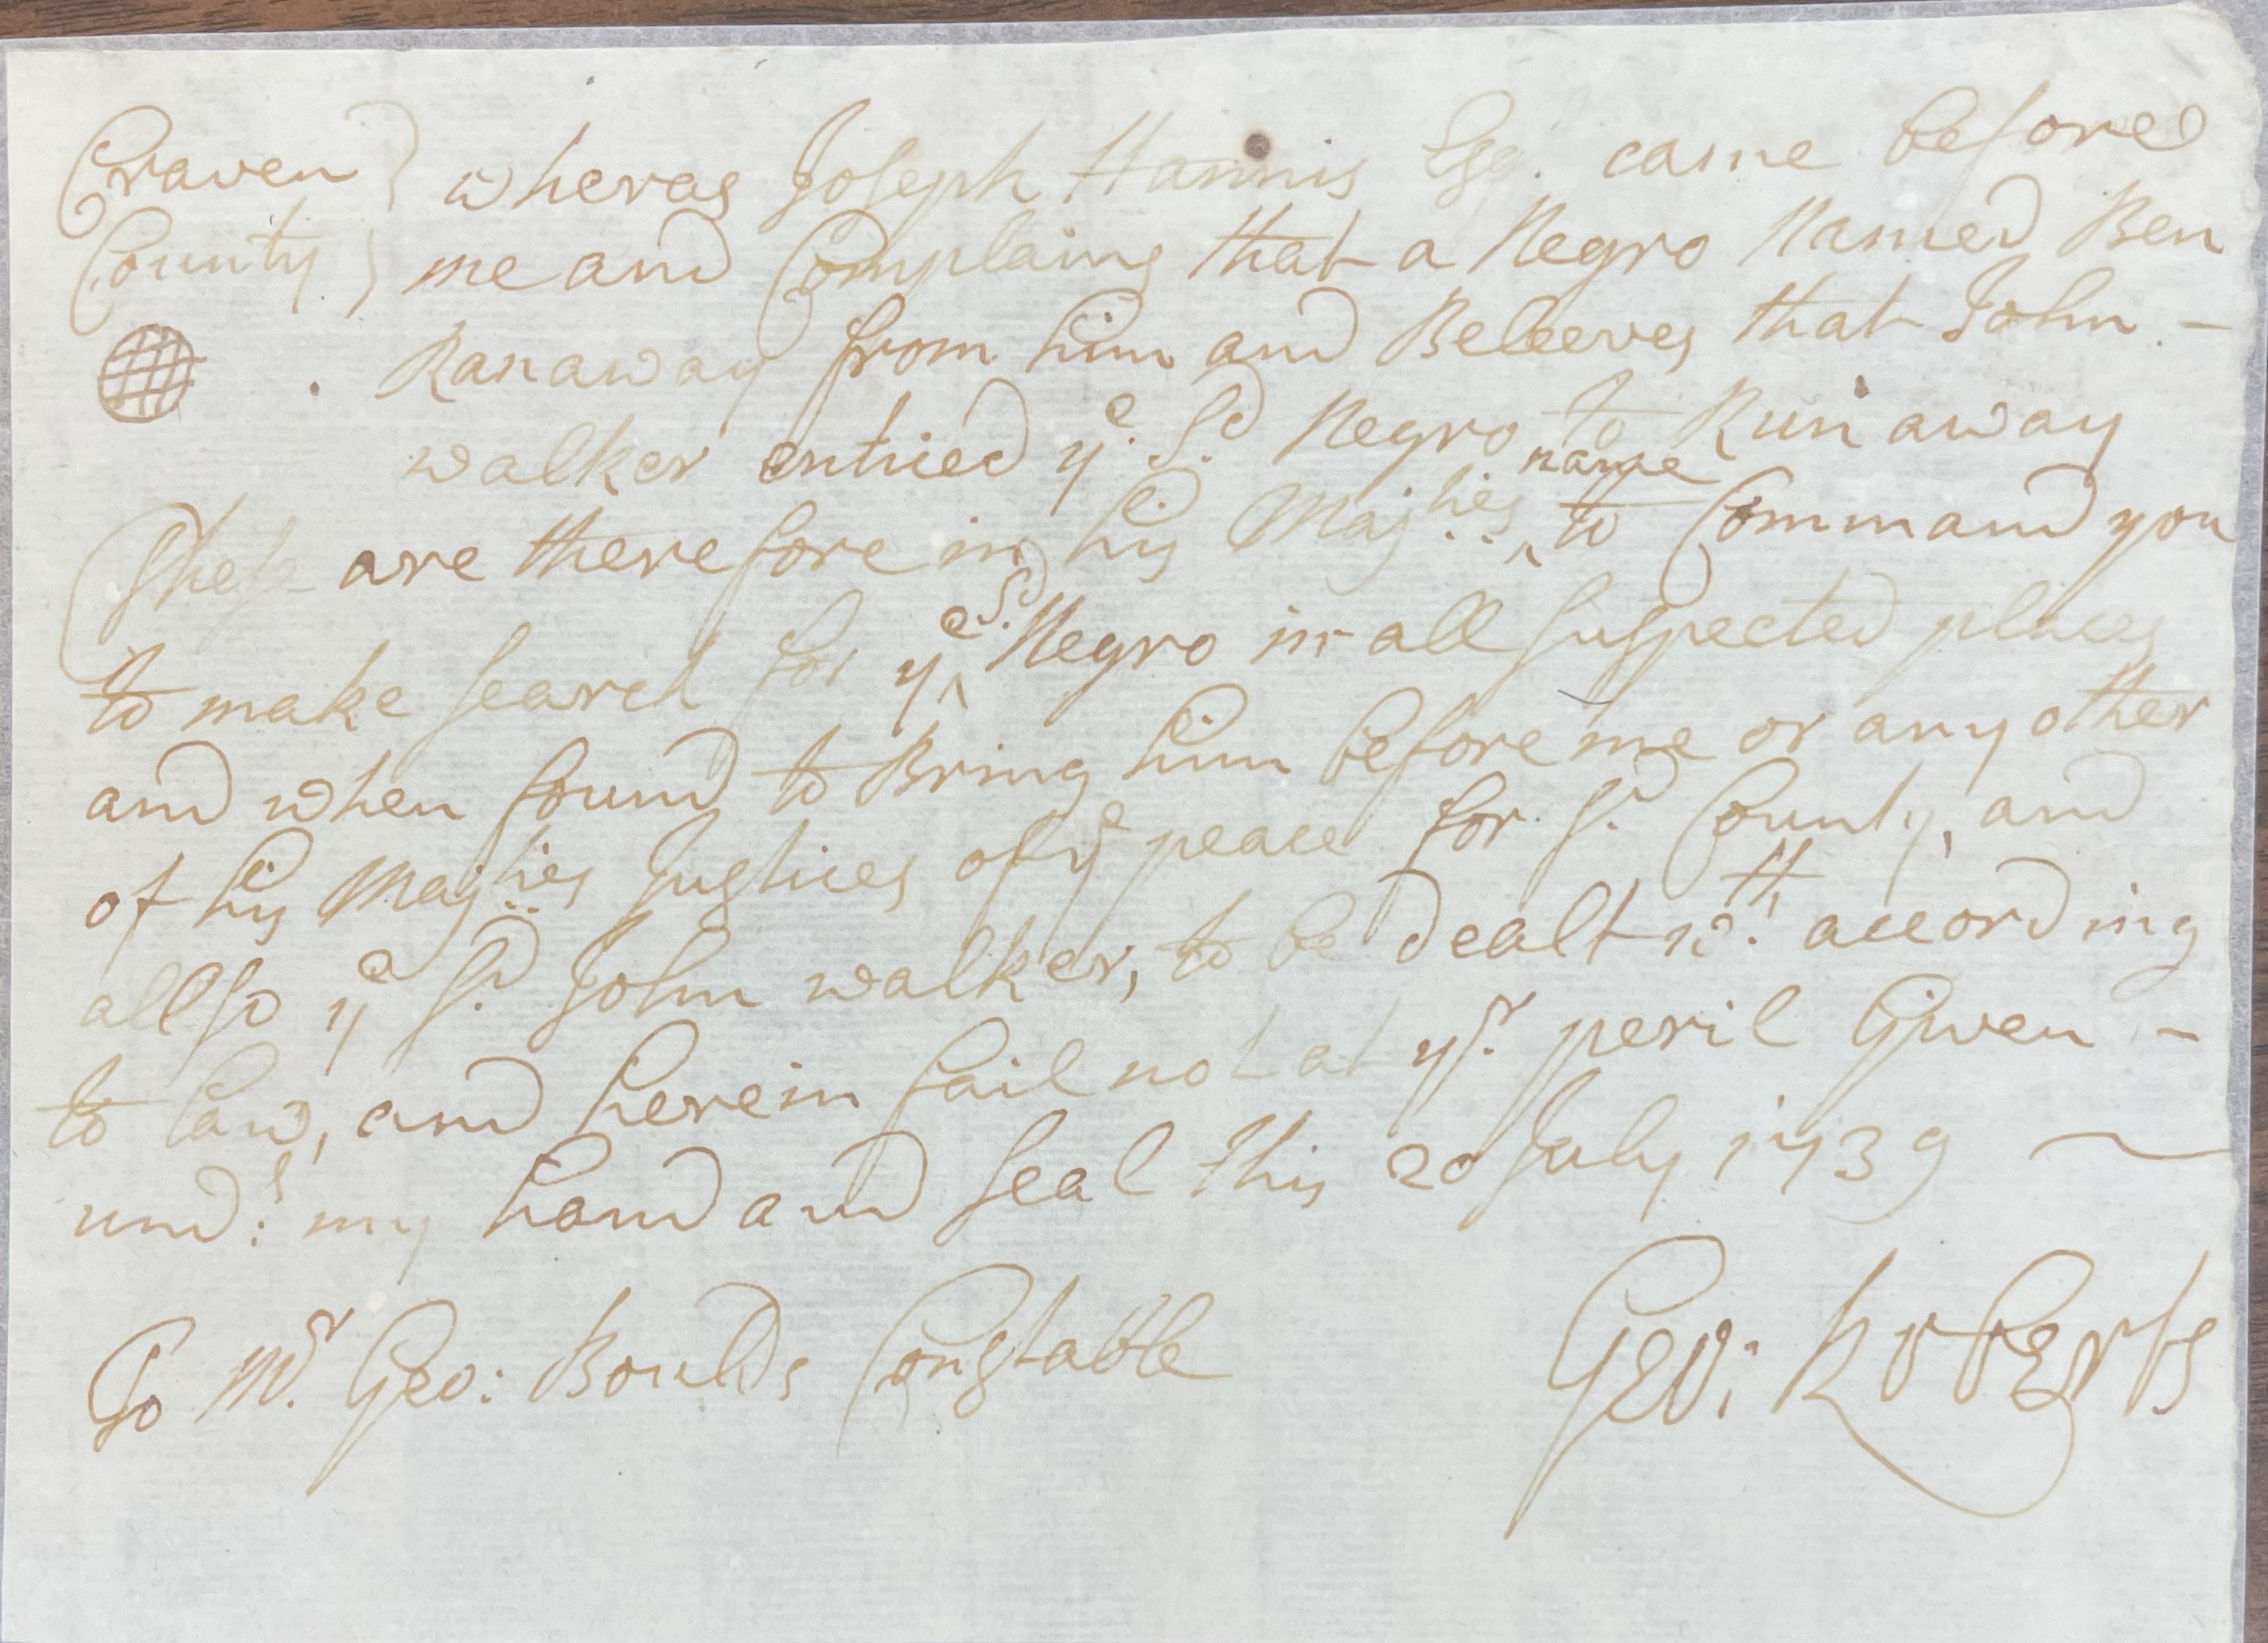 Craven } wheras Joseph Hannis Esqr. came before
County } me and Complains that a Negro Named Ben
Ranaway from him and Beleeves that John -
walker enticed ye Sd Negro to Run away
These are therefore in his Majties name to Command you
to make search for ye Sd Negro in all suspected places
and when found to Bring him before me or any other
of his Majties Justices of ye peace for Sd County, and
allso ye Sd John walker, to be dealt wth according
to Law, and herein fail not at yr peril Given -
undr my hand and seal this 20 July 1739
To Mr Geo: Boulds Constable
Geo: Roberts